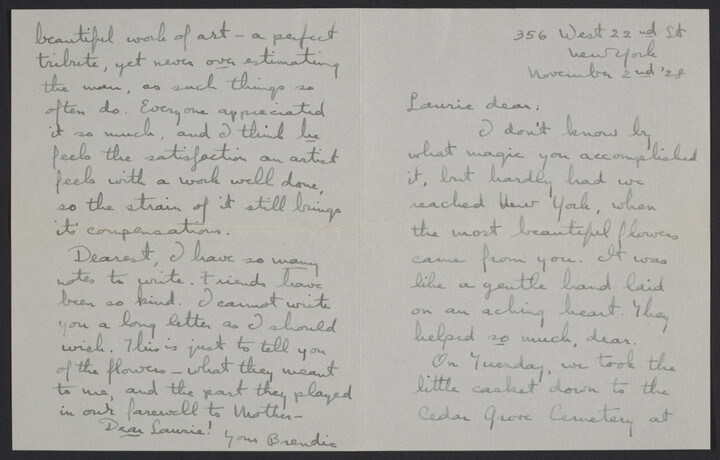 356 West 22nd St
New York
November 2nd '28
Laurie dear:
I don't know by
what magic you accomplished
it, but hardly had we
reached New York, when
the most beautiful flowers
came from you. It was
like a gentle hand laid
on an aching heart. They
helped so much, dear.
On Tuesday, we took the
little casket down to the
Cedar Grove Cemetery at
beautiful work of art – a perfect
tribute, yet never over estimating
the man, as such things so
often do. Everyone appreciated
it so much, and I think he
feels the satisfaction an artist
feels with a work well done,
so the strain of it still brings
its compensations.
Dearest, I have so many
notes to write. Friends have
been so kind. I cannot write
you a long letter as I should
wish. This is just to tell you
of the flowers – what they meant
to me, and the part they played
in our farewell to Mother –
Dear Laurie! Your Brendie